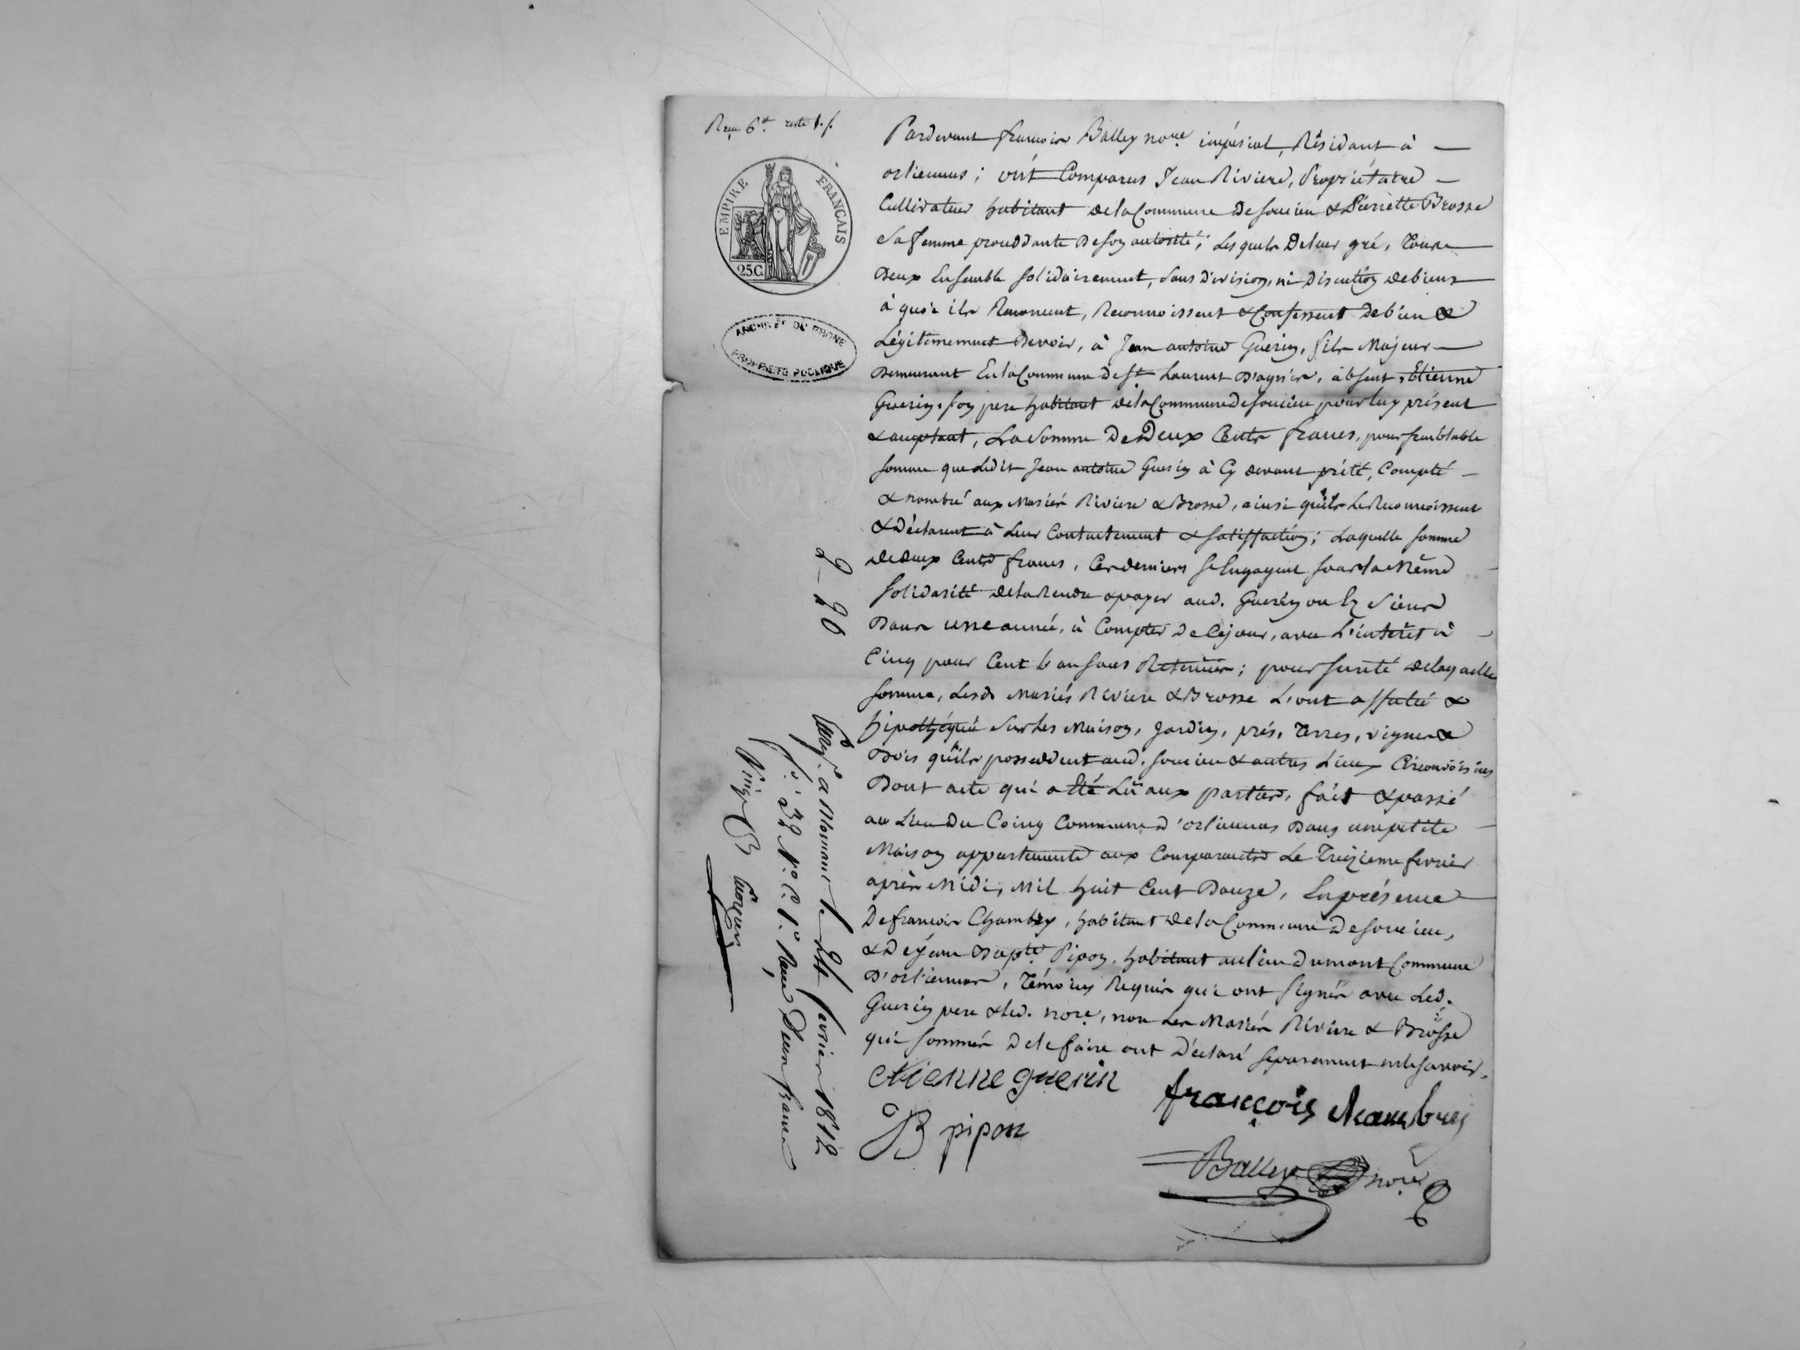 Reçu 6ʰ reste 1.f.
EMPIRE FRANÇAIS
25C.
ARCHIVES DU RHONE
PROPRIÉTÉ PUBLIQUE
Pardevant françois Balley nore. impérial, Résidant à
orliennas; ont Comparus Jean Riviere, Propriétaire
Cultivateur habitant de la Commune de soucieu & Pierrette Brosse
sa femme procédante de son autorité; Les quels de leur gré, tous
deux Ensemble solidairement, sans division, ni discution de biens
à quoi ils Renoncent, Reconnoissent & Confessent de bien &
Légitimement devoir, à Jean antoine Guerin, fils Majeur
demeurant En la Commune de St. Laurent d'agnier, absent, Etienne
Guerin, son pere habitant de la Commune de soucieu pour luy présent
& acceptant, La somme De Deux Cents francs, pour semblable
somme que Ledit Jean antoine Guerin à Cy devant prété, Compté
& nombré aux Mariés Riviere & Brosse, ainsi qu'ils Le Reconnoissent
& déclarent à Leur Contentement & satisfaction; Laquelle somme
de deux Cents francs, Ces derniers s'Engagent sous la Même
solidarité de la Rendre & payer aud. Guerin ou Ez siens
Dans une année, à Compter de Cejour, avec L'intérêt à
Cinq pour Cent l'an sans Retenue; pour sureté de laquelle
somme, Lesds. Mariés Riviere & Brosse L'ont affecté &
hipothéqué sur les Maison, Jardin, prés, Terres, vignes &
Bois qu'ils possedent aud. soucieu & autres Lieux Circonvoisins
Dont acte qui a été Lû aux parties, fait & passé
au Lieu du Coing Commune d'orliennas Dans une petite
Maison appartenante aux Comparants Le Treizieme fevrier
après Midi, Mil huit Cent Douze, En présence
De françois Chambry, habitant de la Commune de soucieu,
& de jean Bapte. Pipon, habitant au lieu du mont Commune
D'orliennas, Témoins Requis qui ont signés avec Led.
Guerin pere & led. nore, non Les Mariés Riviere & Brosse
qui sommés de le faire ont déclaré séparement ne le savoir.
etienne guerin
françois chambry
JB pipon
Balley nore
2 - 20
Enrgé. à Mornant le 24 fevrier 1812
fo. 39 Vo. C. 1o. Reçu Deux francs
Vingt C.